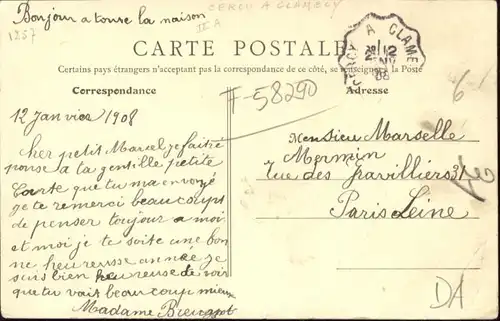 Bonjour a toute la maison
CERCY A CLAMECY
II A
1257
CARTE POSTALE
Certains pays étrangers n'acceptent pas la correspondance de ce côté, se renseigner à la Poste
Correspondance
Adresse
CERCY A CLAMECY
12
08
F-58290
6
12 Janvier 1908
cher petit Marcel je
ponse a ta gentille petite
Carte que tu ma envoyé
je te remerci beaucoups
de penser toujour a moi
et moi je te soite une bon
ne heureusse année je
suis bien heureusse de voir
que tu vait beaucoup mieux
Madame
Monsieur Marselle
Mermin
rue des gravilliers 31
Paris Seine
DA